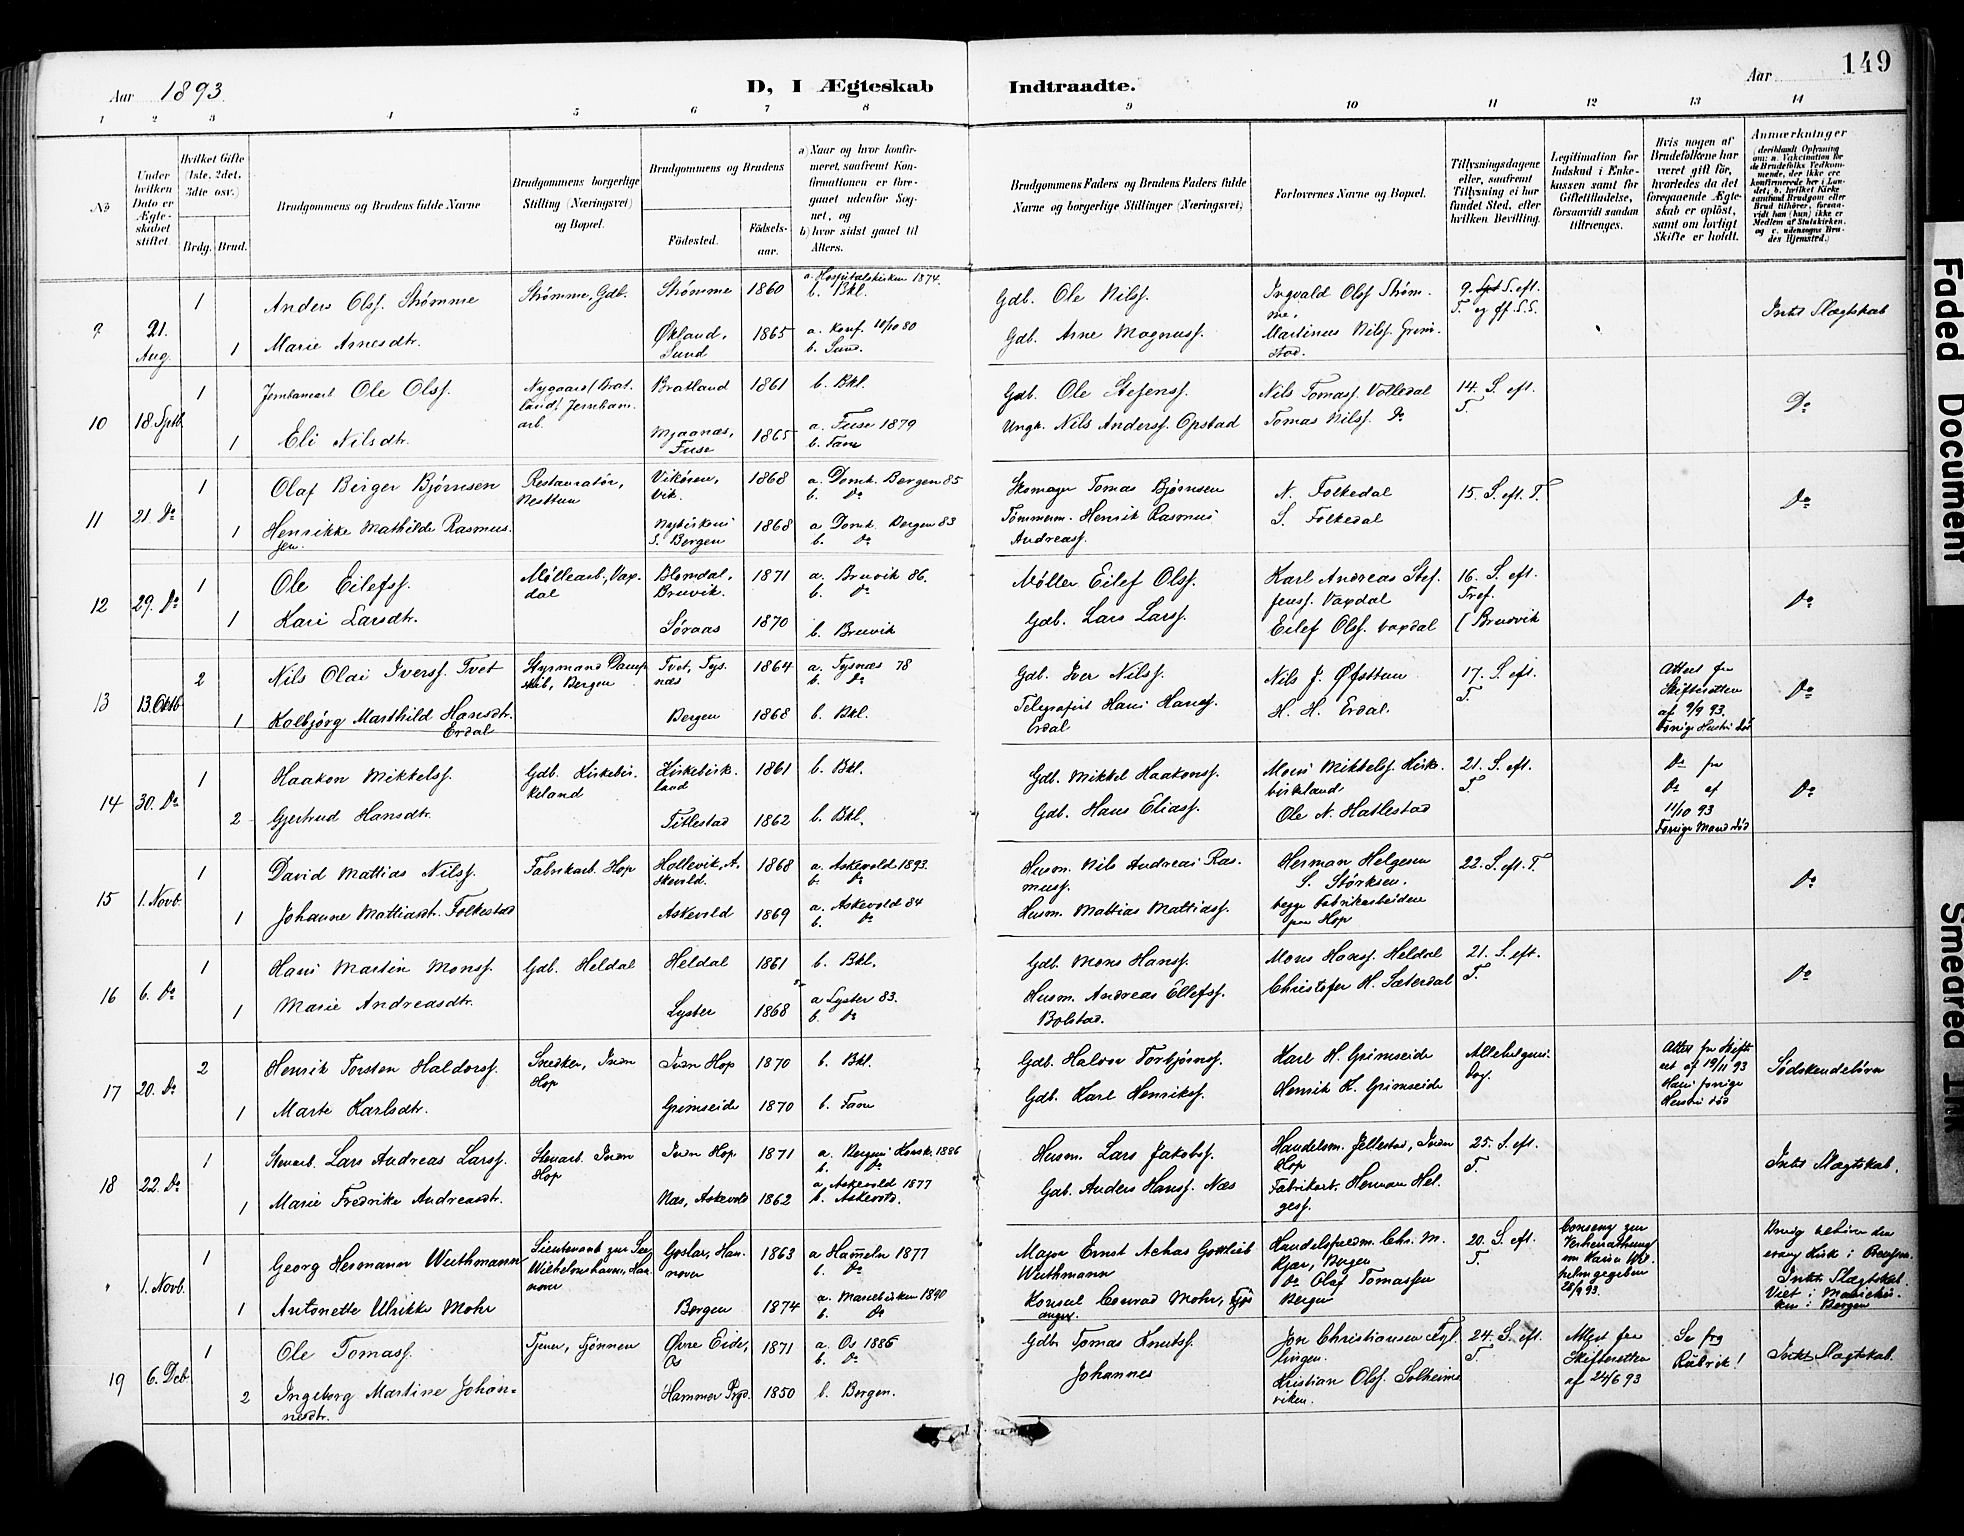 149
Aar 1893.
D, I Ægteskab Indtraadte.
Aar
1 2 3 4 5 6 7 8 9 10 11 12 13 14
No
Under hvilken Dato er Ægteskabet stiftet.
Hvilket Gifte (1ste, 2det, 3die osv.)
Brdg. Brud.
Brudgommens og Brudens fulde Navne
Brudgommens borgerlige Stilling (Næringsvei) og Bopæl.
Brudgommens og Brudens
Fødested.
Fødselsaar.
a) Naar og hvor konfirmeret, saafremt Konfirmationen er foregaaet udenfor Sognet, og
b) hvor sidst gaaet til Alters.
Brudgommens Faders og Brudens Faders fulde Navne og borgerlige Stillinger (Næringsvei)
Forlovernes Navne og Bopæl.
Tillysningsdagene eller, saafremt Tillysning ei har fundet Sted, efter hvilken Bevilling.
Legitimation for Indskud i Enkekassen samt for Giftetilladelse, forsaavidt saadan tiltrænges.
Hvis nogen af Brudefolkene har været gift før, hvorledes da det foregaaende Ægteskab er opløst, samt om lovligt Skifte er holdt.
Anmærkninger
(deriblandt Oplysning om: a. Vakcination for de Brudefolks Vedkommende, der ikke ere konfirmerede her i Landet; b. hvilket Kirkesamfund Brudgom eller Brud tilhører, forsaavidt han (hun) ikke er Medlem af Statskirken, og c. udensogns Brudes Hjemsted.)
9 21. Aug. 1 Anders Olss. Strømme Strømme, Gdb. Strømme 1860 a. Hospitalskirken 1874. b. Bkl. Gdb. Ole Nilss. Ingvald Olss Strømme, 9. S. eft. T. og ff. S.S. Intet Slægtskab
1 Marie Arnesdtr. Økland, Sund 1865 a. Konf. 10/10 80 b. Sund. Gdb. Arne Magnuss. Martinus Nilss. Grimstad.
10 18. Sptb. 1 Jernbanearb Ole Olss. Bratland 1861 b. Bkl. Gdb. Ole Stefenss. Nils Tomass. Volledal 14. S. eft. T. Do
1 Eli Nilsdtr. Mjaanæs, Fuse 1865 a. Fuse 1879 b. Fane Ungk. Nils Anderss. Opstad Tomas Nilss. Do
11 21. Do 1 Olaf Berger Bjørnsen Restauratør, Nesttun Vikøren, Vik. 1868 a. Domk. Bergen 85 b. Do Skomager Tomas Bjørnsen N. Folkedal 15. S. eft. T Do
1 Henrikke Mathilde Rasmussen. Nykirkens S. Bergen 1868 a Domk. Bergen 83 b. Do Tømmerm. Henrik Rasmus Andreass. S. Folkedal
12 29. Do 1 Ole Eilefss. Møllearb., Vaxdal Blomdal, Bruvik. 1871 a. Bruvik 86. b. Do Møller Eilef Olss. Karl Andreas Steffenss. Vaxdal 16. S. eft. Tref. Do
1 Kari Larsdtr. Søraas 1870 b. Bruvik Gdb. Lars Larss. Eilef Olss. Vaxdal ( Bruvik
13 13. Oktb 2 Nils Olai Iverss. Tvet Styrmand Dampskib, Bergen Tvet, Tysnæs 1864 a. Tysnæs 78 b. Do Gdb. Iver Nilss. Nils J. Øfsttun 17. S. eft. T. Attest fra Skifteretten af 9/9 93. Forrige Hustru død Do
1 Kolbjørg Marthild Hansdtr. Erdal Bergen 1868 b. Bkl. Telegrafist Hans Hanss. Erdal H. H. Erdal.
14 30. Do 1 Haakon Mikkelss. Gdb. Kirkebirkeland Kirkebirkland 1861 b. Bkl. Gdb. Mikkel Haakonss. Mons Mikkelss. Kirkebirkland. 21. S. eft. T. Do fra Do af 11/10 93 Forrige Mand død Do
2 Gjertrud Hansdtr. Titlestad 1862 b. Bkl. Gdb. Hans Eliass. Ole N. Hatlestad
15 1. Novb. 1 David Mattias Nilss. Fabrikarb. Hop Hollevik, Askevold. 1868 a. Askevold 1893. b. Do Husm. Nils Andreas Rasmuss. Herman Helgesen 22. S. eft. T Do
1 Johanne Mattiasdtr. Folkestad Askevold 1869 a. Askevold 84 b. Do Husm. Mattias Mattiass. S. Størksen. begge Fabrikarbeidere paa Hop
16 6. Do 1 Hans Martin Monss. Gdb. Heldal Heldal 1861 b. Bkl. Gdb. Mons Hanss. Mons Hanss. Heldal 21. S. eft. T. Do
1 Marie Andreasdtr. Lyster 1868 a Lyster 83. b. Do Husm. Andreas Ellefss. Bolstad. Christofer H. Sæterdal
17 20. Do 2 Henrik Torsten Haldorss. Snedker, Indre Hop Indre Hop 1870 b. Bkl. Gdb. Haldor Torbjørnss. Karl H. Grimseide Allehelgensdag. Attest fra Skifteret af 19/11 93 Hans forrige Hustru død Sødskendebørn
1 Marte Karlsdtr. Grimseide 1870 b. Fane Gdb. Karl Henrikss. Henrik K. Grimseide
18 22. Do 1 Stenarb. Lars Andreas Larss. Stenarb. Indre Hop Indre Hop 1871 a. Bergens Korsk. 1886 b. Do Husm. Lars Jakobss. Handelsm. Jellestad, Indre Hop 25. S. eft. T. Intet Slægtskab.
1 Marie Fredrike Andreasdtr. Næs, Askevold 1862 a. Askevold 1877 b. Askevold. Gdb. Anders Hanss. Næs Fabrikarb. Herman Helgess.
" 1. Novb. 1 Georg Hermann Wuthmann Lieutenant zur See Wilhelmshaven, Hannover Goslar, Hannover 1863 a Hameln 1877 b. Do Major Ernst Achas Gottlieb Wuthmann Handelsfuldm. Chr. M. Kjær, Bergen 20. S. eft. T. Consens zur Verheirathung von Kaiser Wilhelm gegeben 28/9 93. Intet Slægtskab. Viet i Mariekirken i Bergen
1 Antonette Ulrikke Mohr Bergen 1874 a. Mariekirken 1890 b. Do Konsul Conrad Mohr, Fjøsanger Do Olaf Tomassen Bergen
19 6. Deb. 1 Ole Tomass. Tjener, Tjønnen Øvre Eide, Os 1871 a. Os 1886 b. Do Gdb. Tomas Knutss. Jon Christiansen Fyllingen. 24. S. eft. T. Attest fra Skifteretten af 24/6 93 Se frg Rubrik! Intet Slægtskab.
2 Ingeborg Martine Johannesdtr. Hammer Prgd. 1850 b. Bergen. Johannes Kristian Olss. Solheimsviken.
Faded Document
Smeared Ink